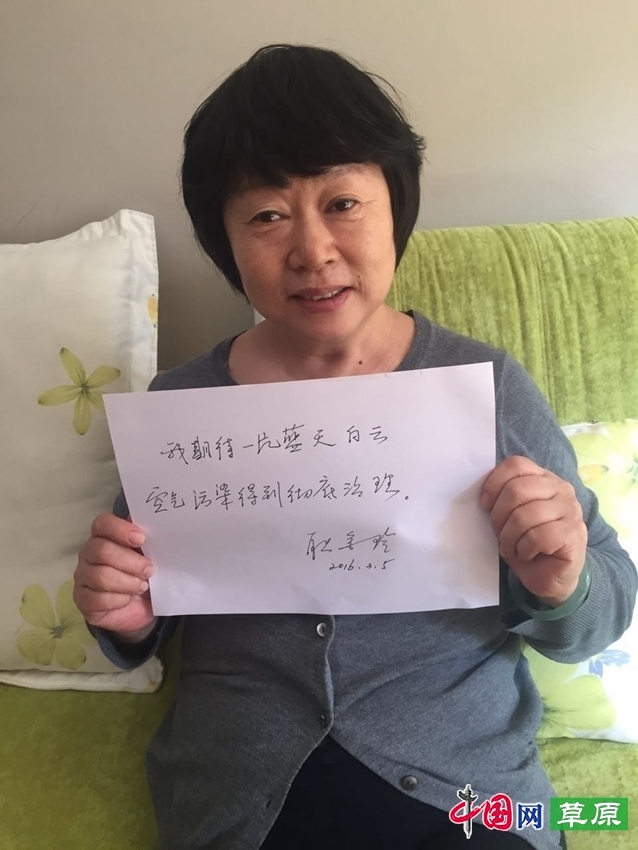 我期待一片蓝天白云
空气污染得到彻底治理。
耿善玲
2016.3.5
中国网 草原